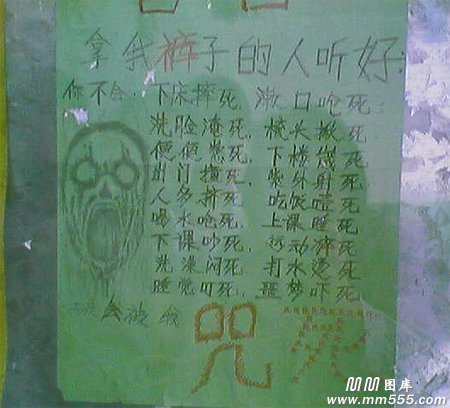 拿我裤子的人听好:
你不会:下床摔死,漱口呛死;
洗脸淹死,梳长搬死
便便熏死,下楼崴死
出门撞死,紫外射死
人多挤死,吃饭噎死
喝水呛死,上课睡死
下课吵死,运动猝死
洗澡闷死,打水烫死
睡觉叮死,噩梦吓死
而是会被我
咒
死
MM图库
www.mm555.com